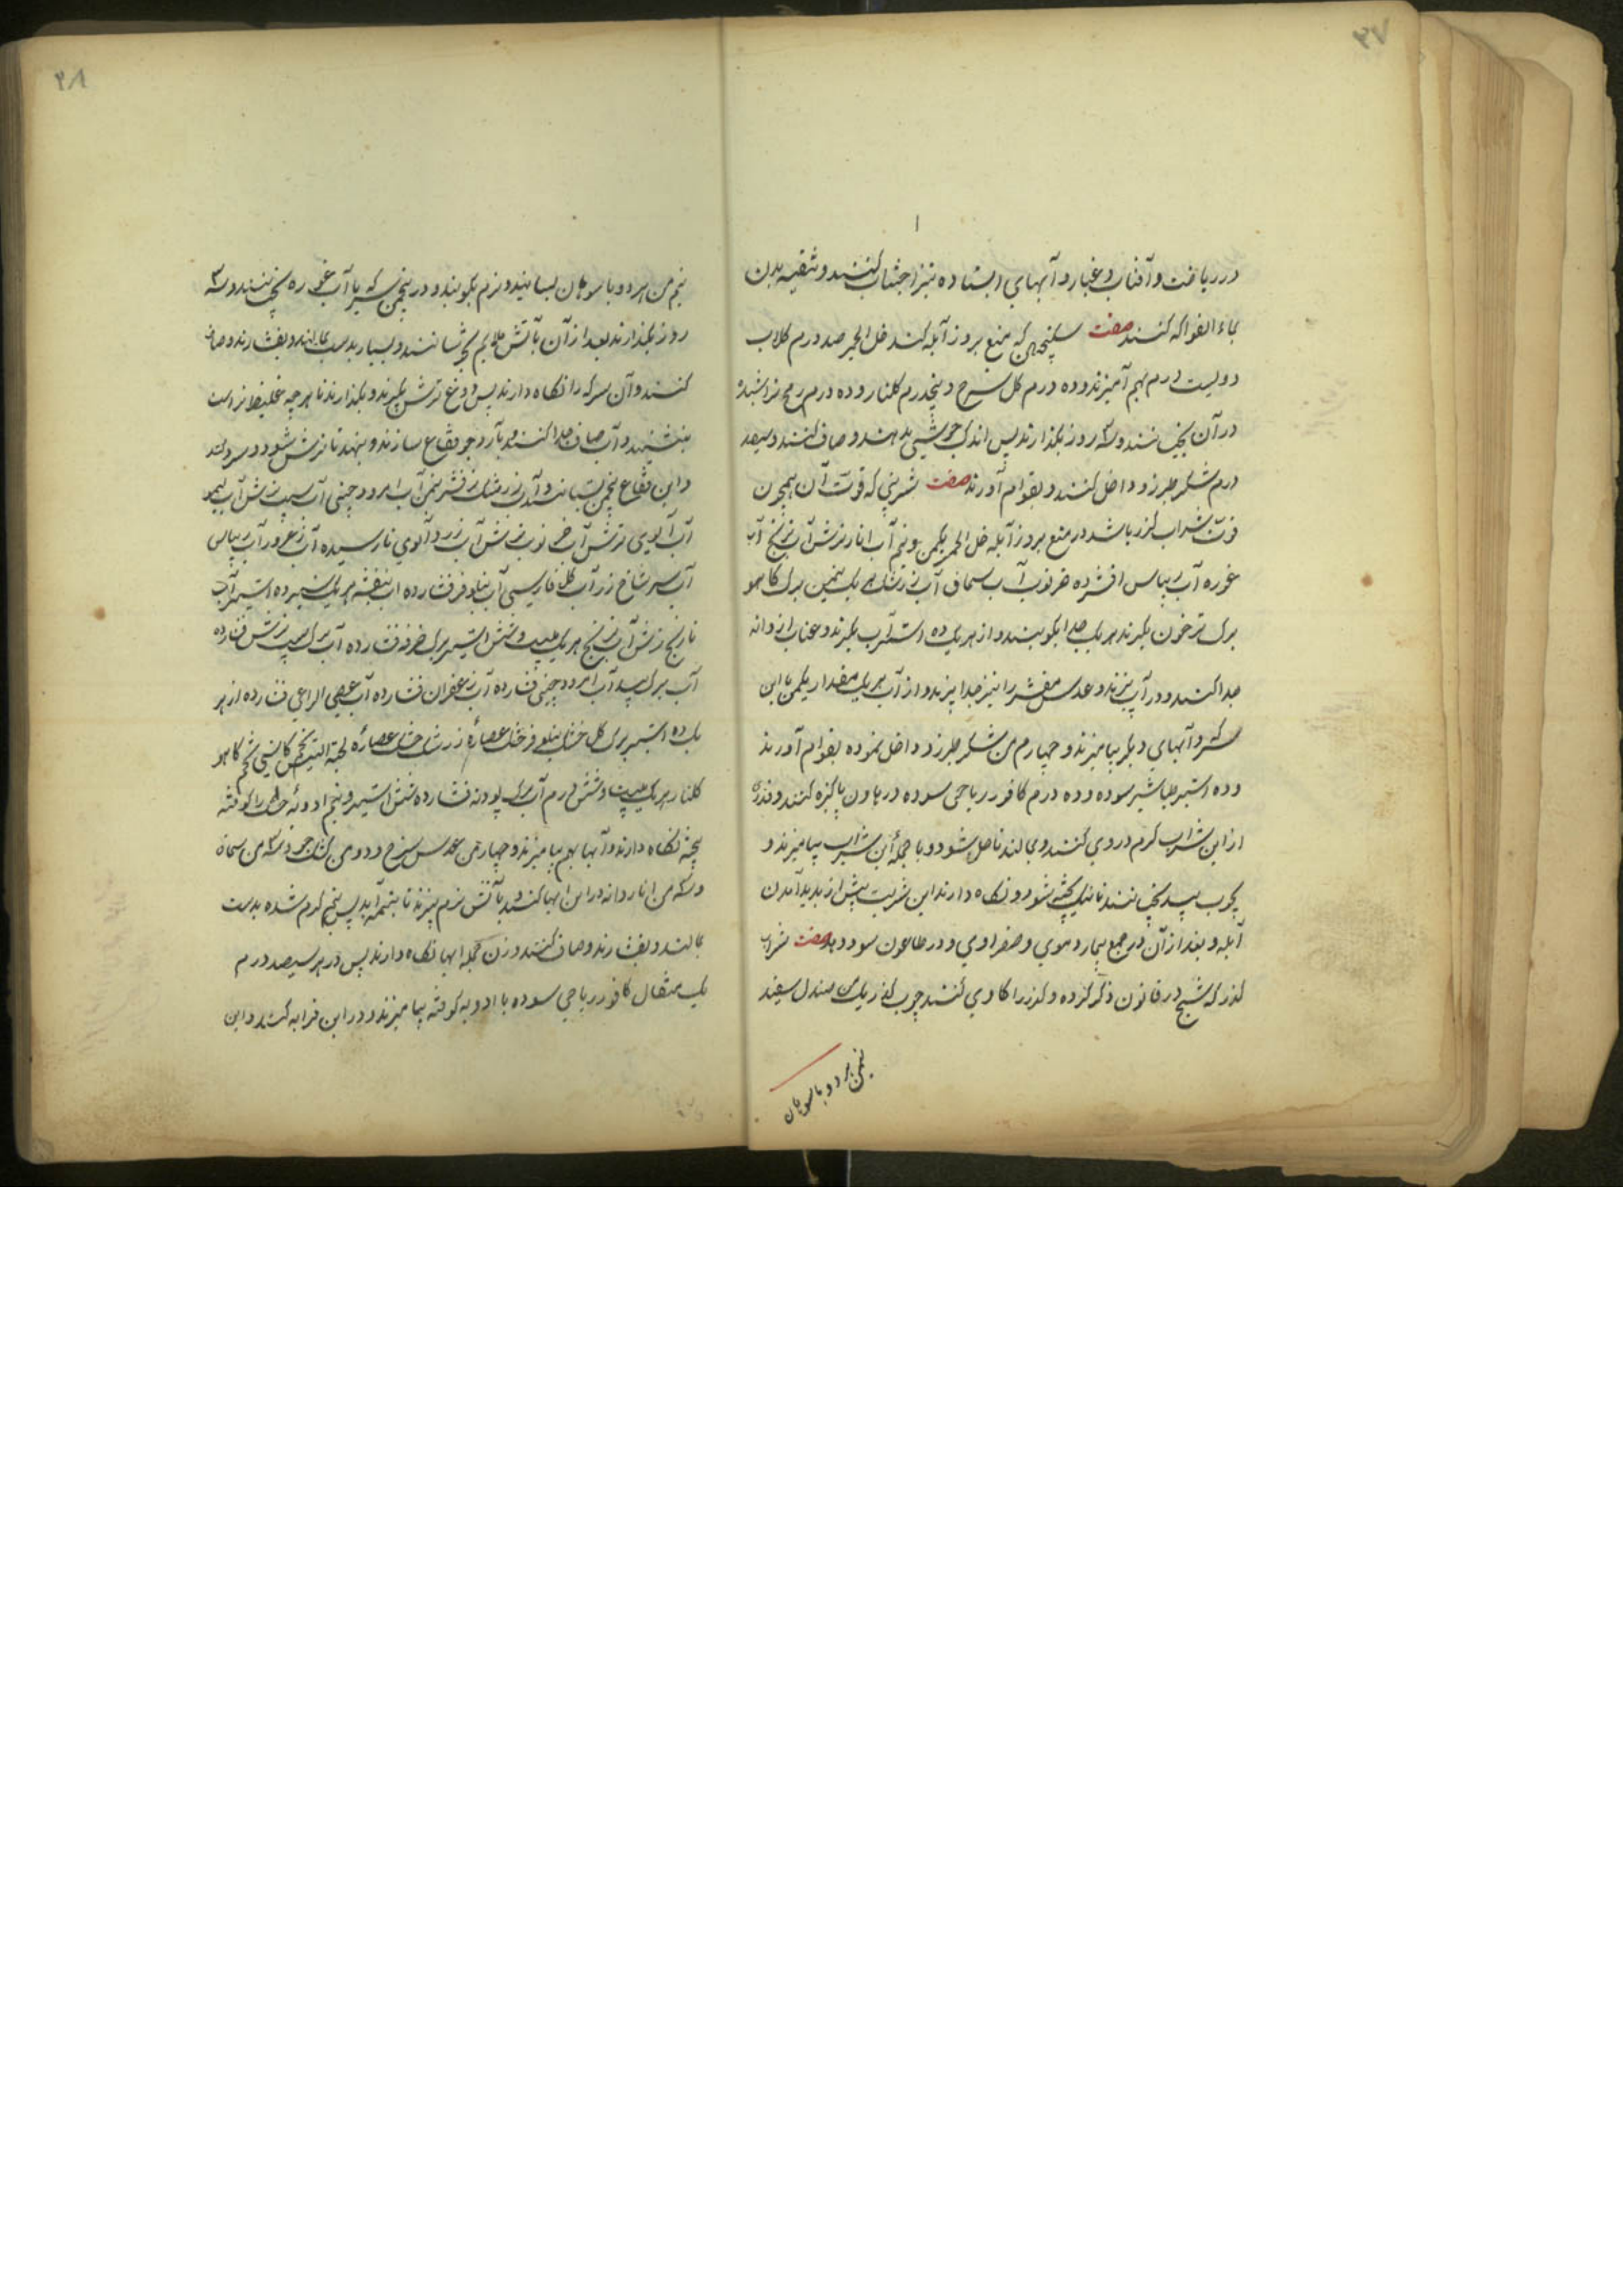 ۴۷
در ریاضت و آفتاب و غبار و آبهای ایستاده نیز اجتناب کنند و تنقیه بدن
بماء الفواکه کنند صفت سکنجبین که منع بروز آبله کند خل الخمر صد درم کلاب
دویست درم بهم آمیزند و ده درم کل سرخ و پنجدرم کلنار و ده درم
در آن بخیسانند و سه روز بکذارند پس اندک جوشی بدهند و صاف کنند و سیصد
درم شکر طبرزد داخل کنند و بقوام آورند صفت شربتی که قوت آن همچون
قوت شراب کدر باشد در منع بروز آبله خل الخمر یکمن و نیم آب انار ترش آب ترنج آب
غوره آب ریباس افشرده خرنوب آب سماق آب زرشک هر یک نیمن برک کاهو
برک ترخون بکیرند هر یک جدا بکوبند و از هر یک ده استار آب بکیرند و عناب دانه
جدا کنند و در آب پزند و عدس مقشر را نیز جدا پزند و از آب هر یک مقدار یکمن با این
سرکه و آبهای دیکر بیامیزند و چهار من شکر طبرزد داخل نموده بقوام آورند
و ده استیر طباشیر سوده و ده درم کافور ریاحی سوده در هاون پاکیزه کنند و قدری
از این شراب کرم در وی کنند و بمالند تا حل شود و با جمله این شراب بیامیزند و
بچوب بید بجنبانند تا نیک پخته شود و نکاه دارند این شربت پیش از پدید آمدن
آبله و بعد از آن در جمیع تبها دموی و صفراوی و در طاعون سود دهد صفت شراب
کدر که شیخ در قانون ذکر کرده و کدر را کادی کنند چوب کدر یک من صندل سفید
نیمن هر دو با سوهان
۴۸
نیم من هر دو با سوهان بسایند و نرم بکوبند و در پنجمن سرکه با آب غوره بخیسانند و سه
روز بکذارند بعد از آن بآتش ملایم بجوشانند و بسیار بدست بمالند و بفشارند و صاف
کنند و آن سرکه را نکاه دارند پس دوغ ترش بکیرند و بکذارند تا هر چه غلیظ تر است
بنشیند و آب صاف جدا کنند و بآرد جو فقاع سازند و بنهند تا ترش شود و سرد کند
و این فقاع پنجمن بستانند و آب زرشک ترش نیمن آب امرود چینی آب سیب ترش آب لیمو
آب آلوی ترش آب خرنوب ترش آب زرد آلوی نارسیده آب زعرور آب ریباس
آب سر شاخ رز آب کل فارسی آب نیلوفر فشارده آب بنفشه هر یک سیزده استیر آب
نارنج ترش آب ترنج هر یک بیست و شش استیر برک خرفه فشارده آب برک سیب ترش فشارده
آب برک بید آب امرود چینی فشارده آب زعفران فشارده آب عصی الراعی فشارده از هر
یک ده استیر برک کل خشک نیلوفر خشک عصاره زرشک خشک عصاره لحیة التیس تخم کاسنی تخم کاهو
کلنار هر یک بیست و شش درم آب برک پودنه فشارده شش استیر و نیم ادویه خشک را کوفته
پخته نکاه دارند و آبها بهم بیامیزند و چهار من عدس سرخ و دو من کشک جو و سه من سماق
و سه من انار دانه در این آبها کنند و بآتش نرم پزند تا بنیمه آید پس نیم کرم شده بدست
بمالند و بفشارند و صاف کنند وزن جمله آبها نکاه دارند پس در هر سیصد درم
یک مثقال کافور ریاحی سوده با ادویه کوفته بیامیزند و در این قرابه کنند و این